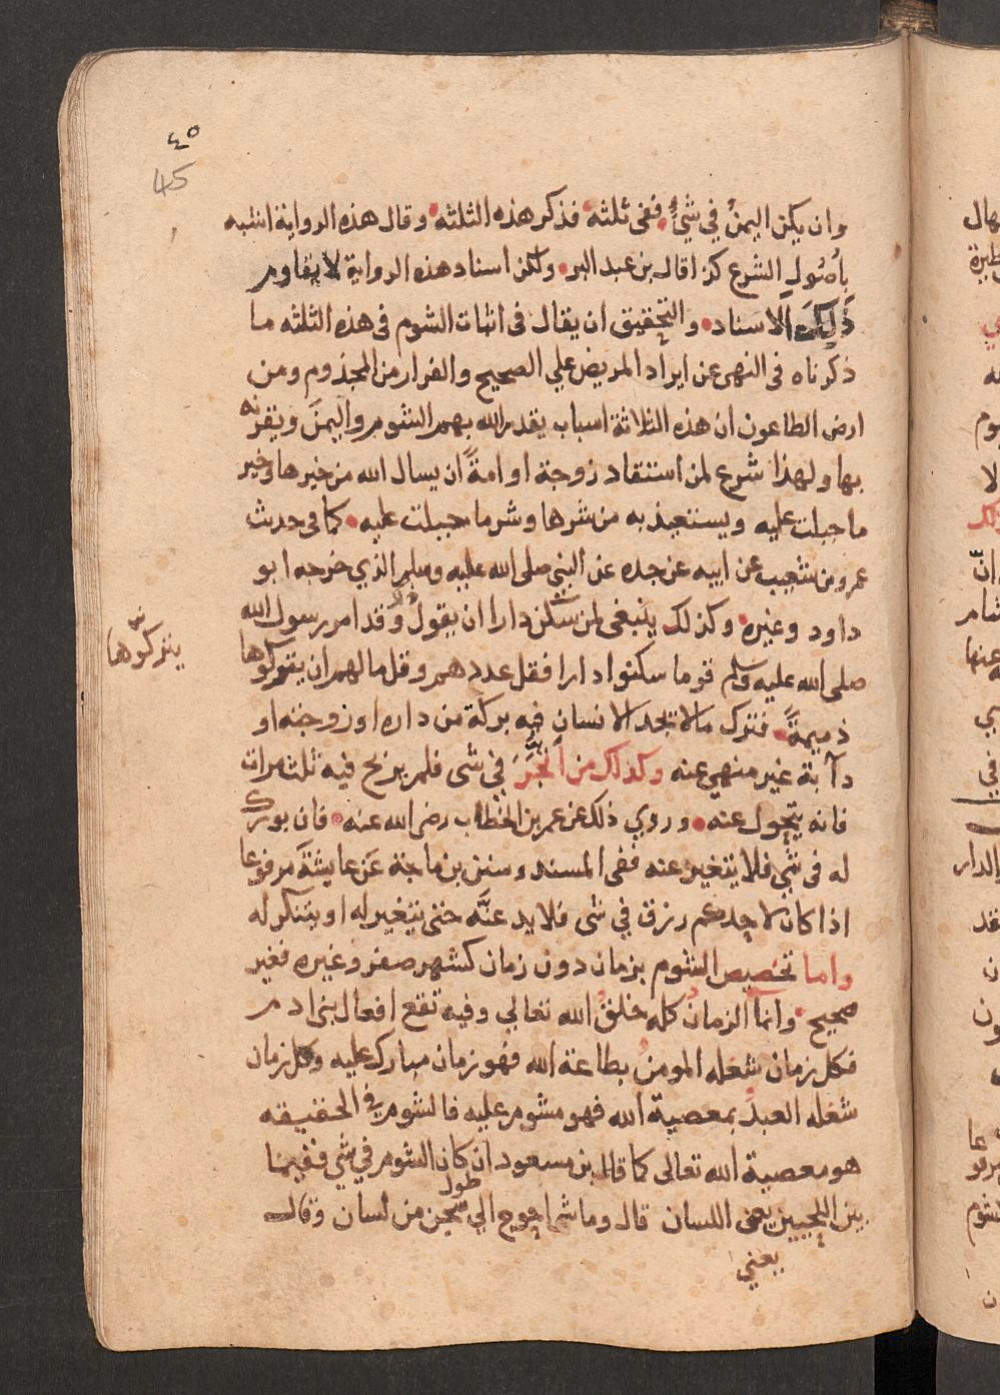 ٤٥
45
وان يكن اليمنُ في شيءٌ ففى ثلثه فذكر هذه الثلثه وقال هذه الرواية اشبه
باُصُول الشرع كذا قال بن عبد البر ولكن اسناد هذه الرواية لا يقاوم
ذَلِكَ الاسناد والتحقيق ان يقال فى اثبات الشوم فى هذه الثلثه ما
ذكرناه فى النهى عن ايراد المريض علي الصحيح والفرار من المجذوم ومن
ارض الطاعون ان هذه الثلاثة اسباب يقدر الله بهم الشوم واليمنَ ويقرنه
بها ولهذا شرع لمن استفاد زوجة او امةً ان يسال الله من خيرها وخير
ما جبلت عليه ويستعيذ به من شرها وشر ما جبلت عليه كما فى حديث
عمرو بن شعيب عن ابيه عن جده عن النبي صلى الله عليه وسلم الذي خرجه ابو
داود وغيره وكذلك ينبغى لمن سكن دارا ان يقول وقد امر رسول الله
صلى الله عليه وسلم قوما سكنوا دارا فقل عددهم وقل مالهم ان
يتركوها
ذميمةً فترك مالا يجد الانسان فيه بركة من داره او زوجته او
دآبة غير منهي عنه وكذلك من اتجَرَ في شى فلم يربح فيه ثلث مرات
فانه يتحول عنه وروي ذلك عن عمر بن الخطاب رضى الله عنه فان بورك
له فى شي فلا يتغير عنه ففى المسند وسنن بن ماجة عَن عايشةَ مرفوعا
اذا كان لاحدكم رزق في شى فلا يدعنَّه حتى يتغير له او يتنكر له
واما تخصيص الشوم بزمان دون زمان كشهر صفر وغيره فغير
صحيح وانما الزمان كله خلقُ الله تعالي وفيه تقع افعال بنى ادم
فكل زمان شغله المومنُ بطاعة الله فهو زمان مبارك عليه وكل زمان
شغله العبدُ بمعصية الله فهو مشوم عليه فالشوم في الحقيقه
هو معصية الله تعالى كما قال بن مسعود ان كان الشوم في شي ففيما
بين اللحيين يعنى اللسان قال وما شي احوج الي طول سجن من لسان وقال
يعني